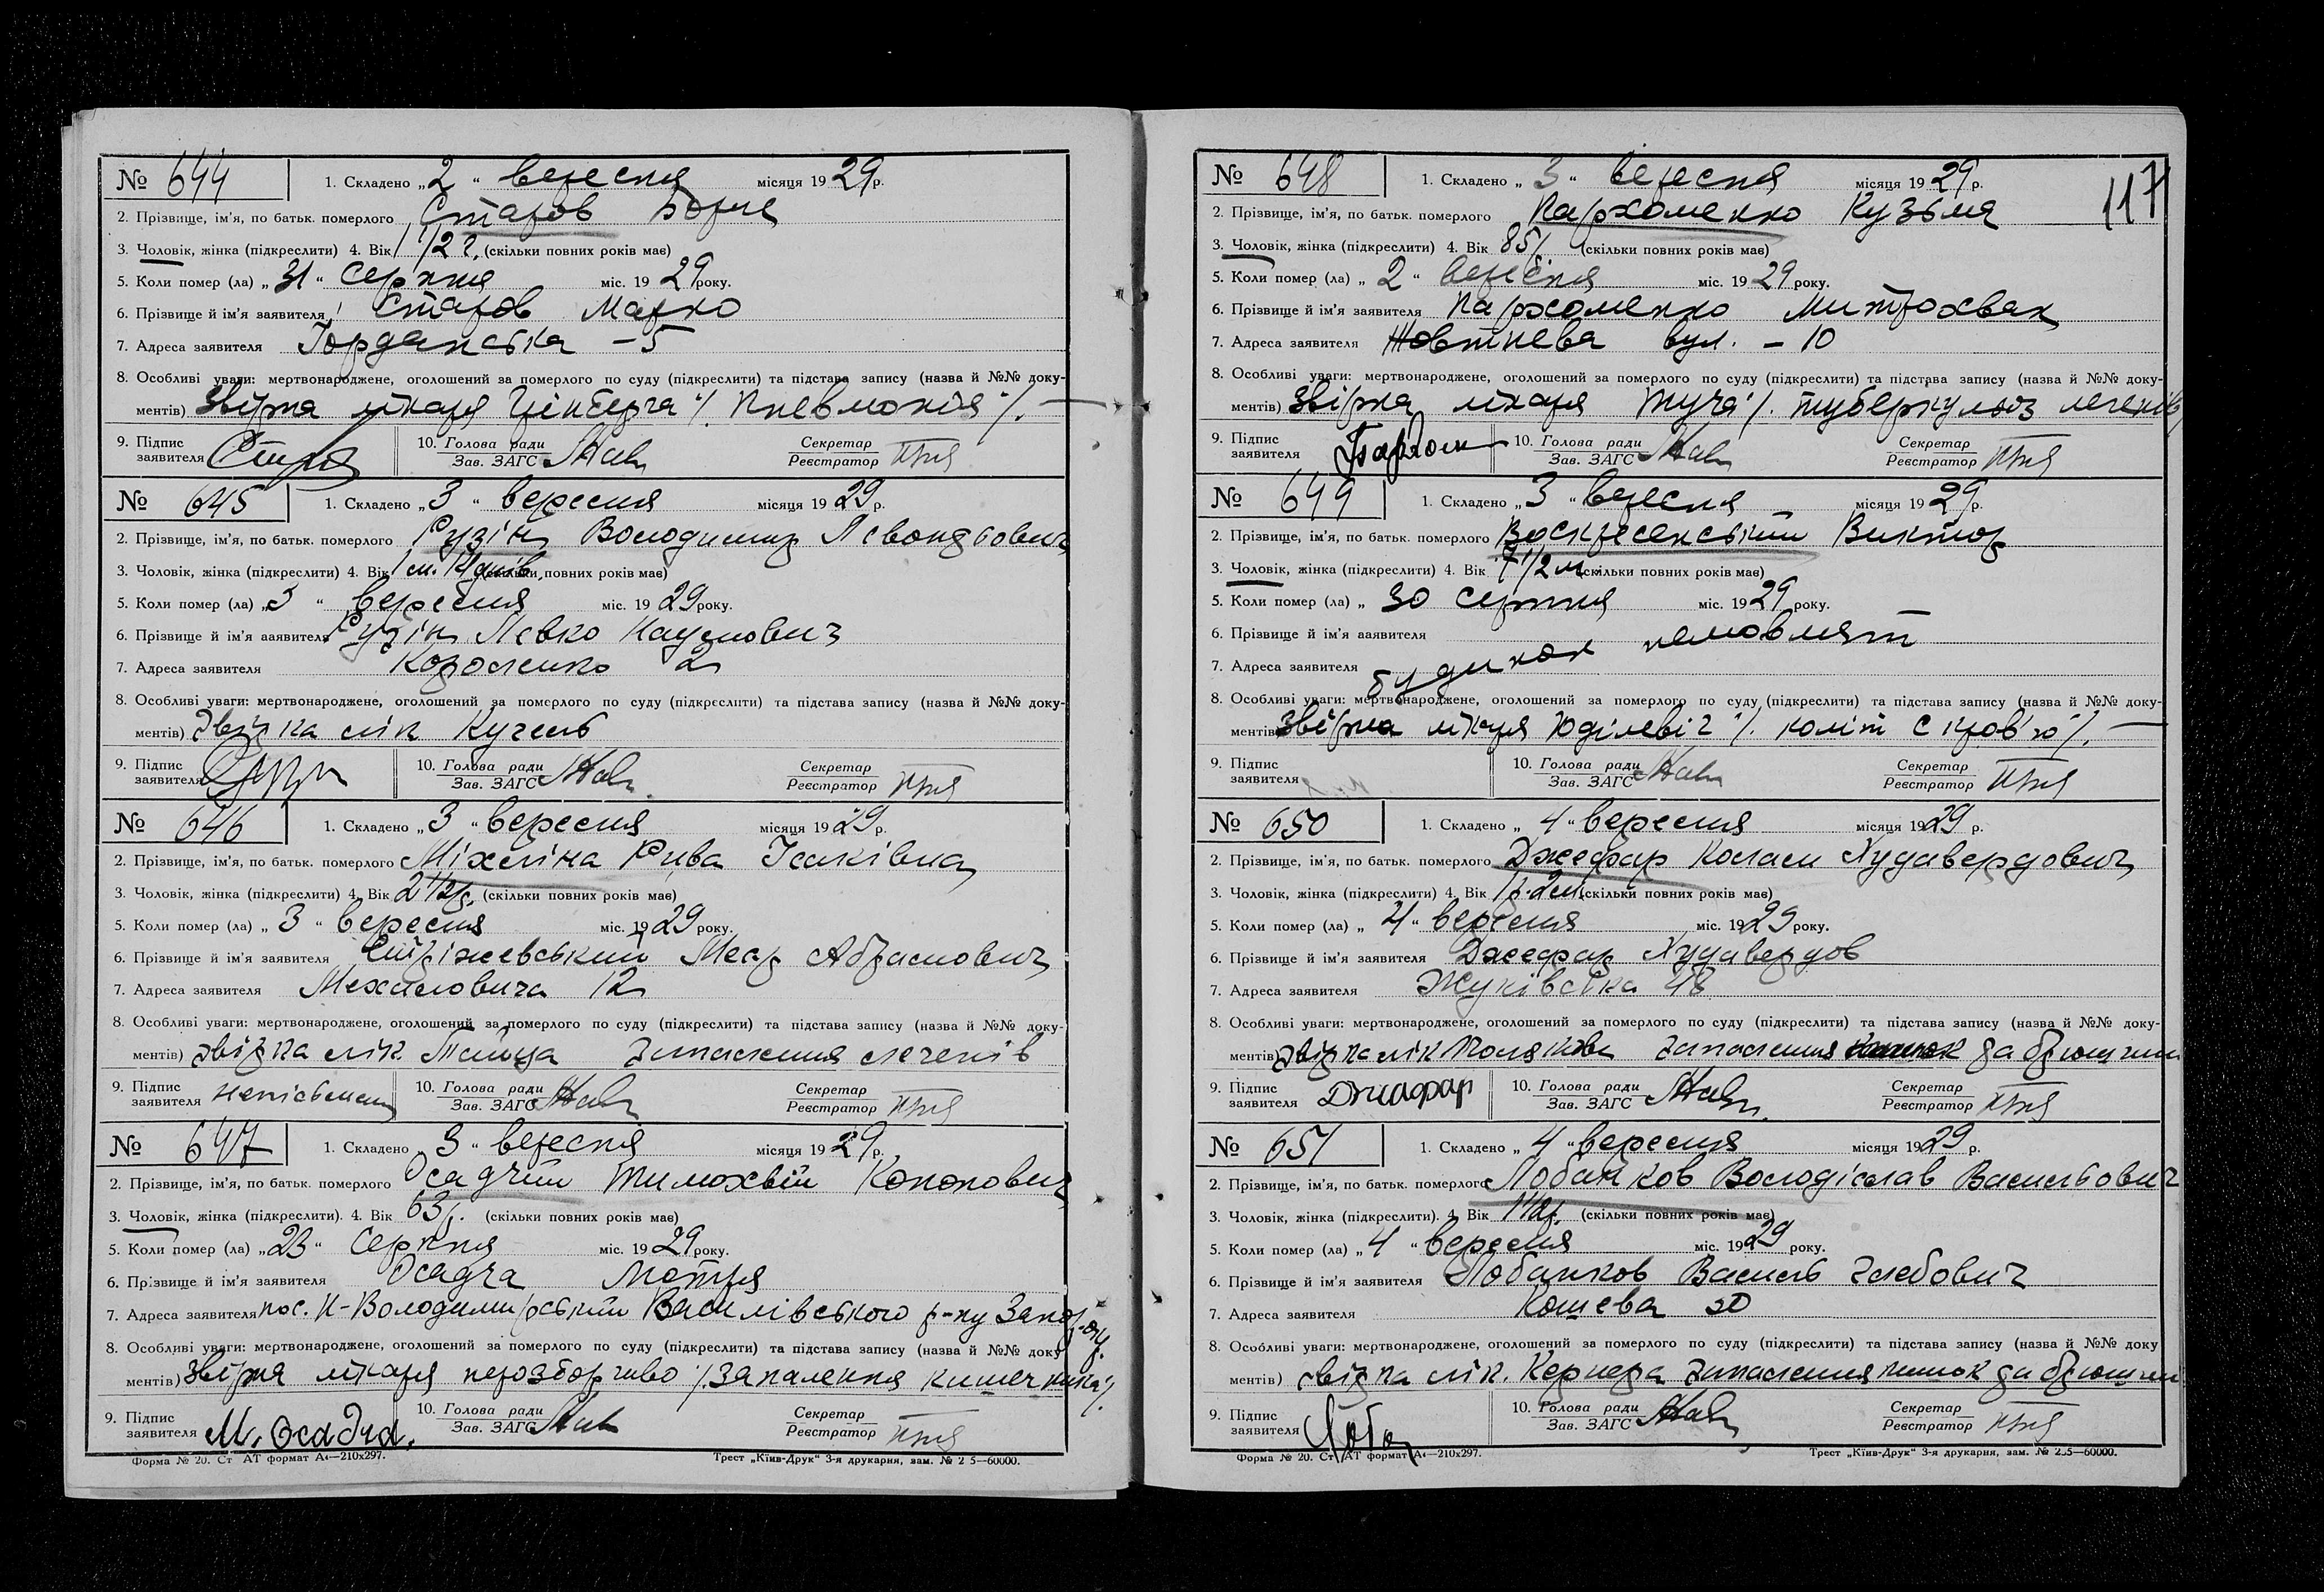 № 644 1. Складено „2“ вересня місяця 1929 р.
2. Прізвище, ім'я, по батьк. померлого Старов Борис
3. Чоловік, жінка (підкреслити) 4. Вік 1 1/2 г. (скільки повних років має)
5. Коли помер (ла) „31“ серпня міс. 1929 року.
6. Прізвище й ім'я заявителя Старов Марко
7. Адреса заявителя Іорданська - 5
8. Особливі уваги: мертвонароджене, оголошений за померлого по суду (підкреслити) та підстава запису (назва й №№ доку-
ментів) звірка лікаря Грінберга /. пневмонія /. —
9. Підпис заявителя 10. Голова ради Зав. ЗАГС Секретар Реєстратор
№ 645 1. Складено „3“ вересня місяця 1929 р.
2. Прізвище, ім'я, по батьк. померлого Рузін Володимир Левондович
3. Чоловік, жінка (підкреслити) 4. Вік 1 м. 14 днів (скільки повних років має)
5. Коли помер (ла) „3“ вересня міс. 1929 року.
6. Прізвище й ім'я заявителя Рузін Левко Наумович
7. Адреса заявителя Короленко 2
8. Особливі уваги: мертвонароджене, оголошений за померлого по суду (підкреслити) та підстава запису (назва й №№ доку-
ментів) звірка лік
9. Підпис заявителя 10. Голова ради Зав. ЗАГС Секретар Реєстратор
№ 646 1. Складено „3“ вересня місяця 1929 р.
2. Прізвище, ім'я, по батьк. померлого Міхліна Рива Ісаківна
3. Чоловік, жінка (підкреслити) 4. Вік 2 1/2 р. (скільки повних років має)
5. Коли помер (ла) „3“ вересня міс. 1929 року.
6. Прізвище й ім'я заявителя Стріжевський Меер Абрамович
7. Адреса заявителя Михайловича 12
8. Особливі уваги: мертвонароджене, оголошений за померлого по суду (підкреслити) та підстава запису (назва й №№ доку-
ментів) звірка лік запалення легенів
9. Підпис заявителя неписьмен 10. Голова ради Зав. ЗАГС Секретар Реєстратор
№ 647 1. Складено „3“ вересня місяця 1929 р.
2. Прізвище, ім'я, по батьк. померлого Осадчий Тимохвій Кононович
3. Чоловік, жінка (підкреслити). 4. Вік 63 р. (скільки повних років має)
5. Коли помер (ла) „23“ серпня міс. 1929 року.
6. Прізвище й ім'я заявителя Осадча Мотря
7. Адреса заявителя пос. Н-Володимирський Василівського р-ну Запор. окр.
8. Особливі уваги: мертвонароджене, оголошений за померлого по суду (підкреслити) та підстава запису (назва й №№ доку
ментів) звірка лікаря нерозборчиво /запалення кишечника/.
9. Підпис заявителя М. Осадча. 10. Голова ради Зав. ЗАГС Секретар Реєстратор
Форма № 20. Ст АТ формат А4—210х297. Трест „Київ-Друк“ 3-я друкарня, зам. № 2 5—60000.
117
№ 648 1. Складено „3“ вересня місяця 1929 р.
2. Прізвище, ім'я, по батьк. померлого Пархоменко Кузьма
3. Чоловік, жінка (підкреслити) 4. Вік 85 р. (скільки повних років має)
5. Коли помер (ла) „2“ вересня міс. 1929 року.
6. Прізвище й ім'я заявителя Пархоменко Митрохван
7. Адреса заявителя Жовтнева вул. - 10
8. Особливі уваги: мертвонароджене, оголошений за померлого по суду (підкреслити) та підстава запису (назва й №№ доку-
ментів) звірка лікаря /. туберкульоз легенів/
9. Підпис заявителя Пархом 10. Голова ради Зав. ЗАГС Секретар Реєстратор
№ 649 1. Складено „3“ вересня місяця 1929 р.
2. Прізвище, ім'я, по батьк. померлого Воскресенський Виктор
3. Чоловік, жінка (підкреслити) 4. Вік 7 1/2 м. (скільки повних років має)
5. Коли помер (ла) „ 30 серпня міс. 1929 року.
6. Прізвище й ім'я заявителя
7. Адреса заявителя будинок немовлят
8. Особливі уваги: мертвонароджене, оголошений за померлого по суду (підкреслити) та підстава запису (назва й №№ доку-
ментів) звірка лікаря Юділевіч /. коліт с кров'ю /. —
9. Підпис заявителя 10. Голова ради Зав. ЗАГС Секретар Реєстратор
№ 650 1. Складено „4“ вересня місяця 1929 р.
2. Прізвище, ім'я, по батьк. померлого Джефар Худавердович
3. Чоловік, жінка (підкреслити) 4. Вік 1 р. 2 м. (скільки повних років має)
5. Коли помер (ла) „4“ вересня міс. 1929 року.
6. Прізвище й ім'я заявителя Джефар Худавердов
7. Адреса заявителя Жуківська 48
8. Особливі уваги: мертвонароджене, оголошений за померлого по суду (підкреслити) та підстава запису (назва й №№ доку-
ментів) звірка лік Полякова запалення
9. Підпис заявителя Джафар 10. Голова ради Зав. ЗАГС Секретар Реєстратор
№ 651 1. Складено „4“ вересня місяця 1929 р.
2. Прізвище, ім'я, по батьк. померлого Лобанков Володіслав Васильович
3. Чоловік, жінка (підкреслити). 4. Вік 1 1/2 р. (скільки повних років має)
5. Коли помер (ла) „4“ вересня міс. 1929 року.
6. Прізвище й ім'я заявителя Лобанков Василь Глебович
7. Адреса заявителя Кошева 50
8. Особливі уваги: мертвонароджене, оголошений за померлого по суду (підкреслити) та підстава запису (назва й №№ доку
ментів) звірка лік. Кернера запалення
9. Підпис заявителя Лоба 10. Голова ради Зав. ЗАГС Секретар Реєстратор
Форма № 20. Ст АТ формат А4—210х297. Трест „Київ-Друк“ 3-я друкарня, зам. № 2.5—60000.